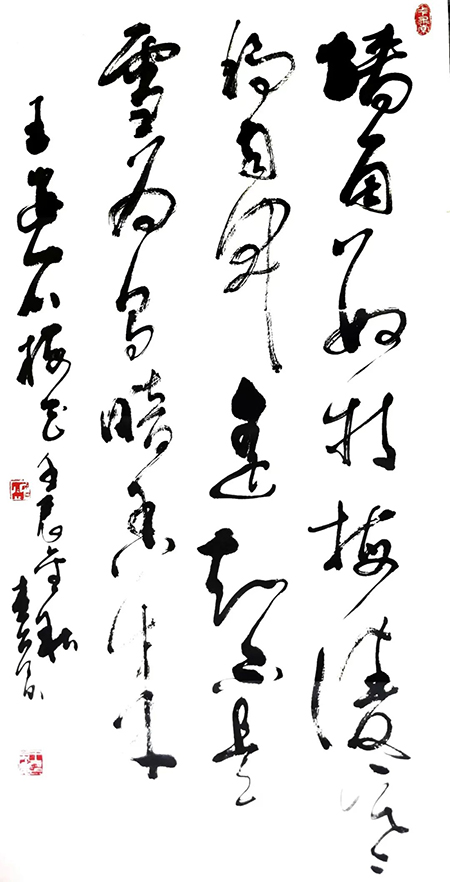 墙角数枝梅凌寒
独自开遥知不是
雪为有暗香来
王安石梅花壬辰金秋